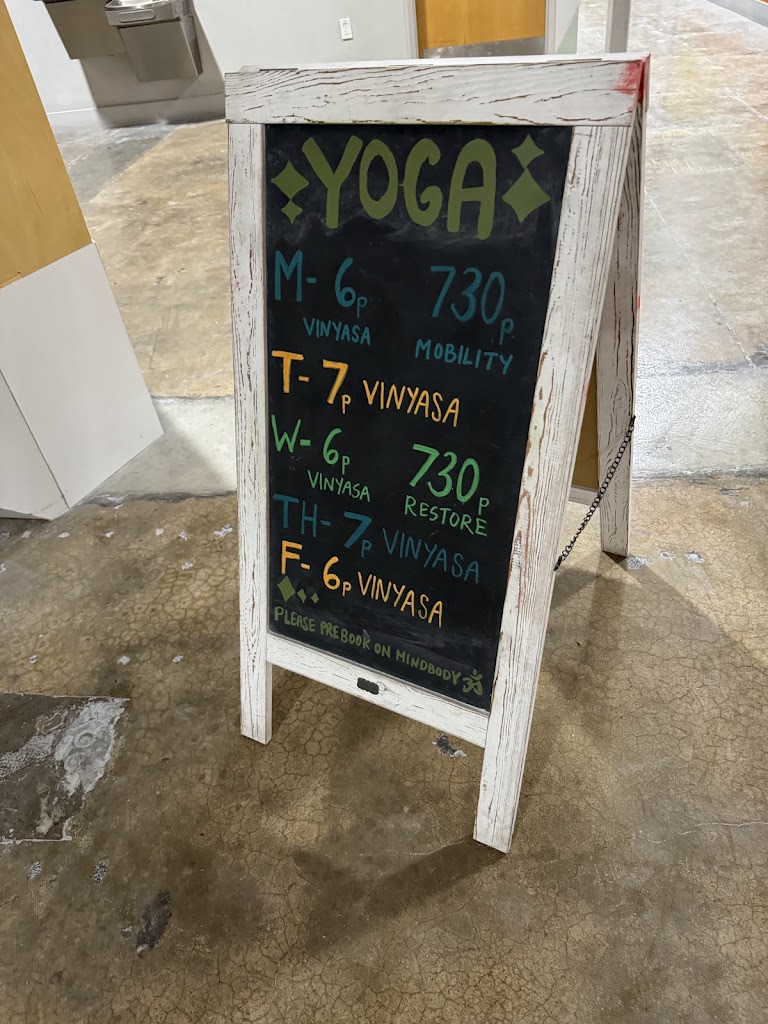 YOGA
M- 6p 730p
VINYASA MOBILITY
T- 7p VINYASA
W- 6p 730p
VINYASA RESTORE
TH- 7p VINYASA
F- 6p VINYASA
PLEASE PREBOOK ON MINDBODY ॐ